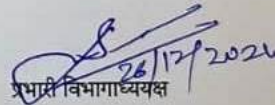 26/12/2024
प्रभारी विभागाध्यक्ष